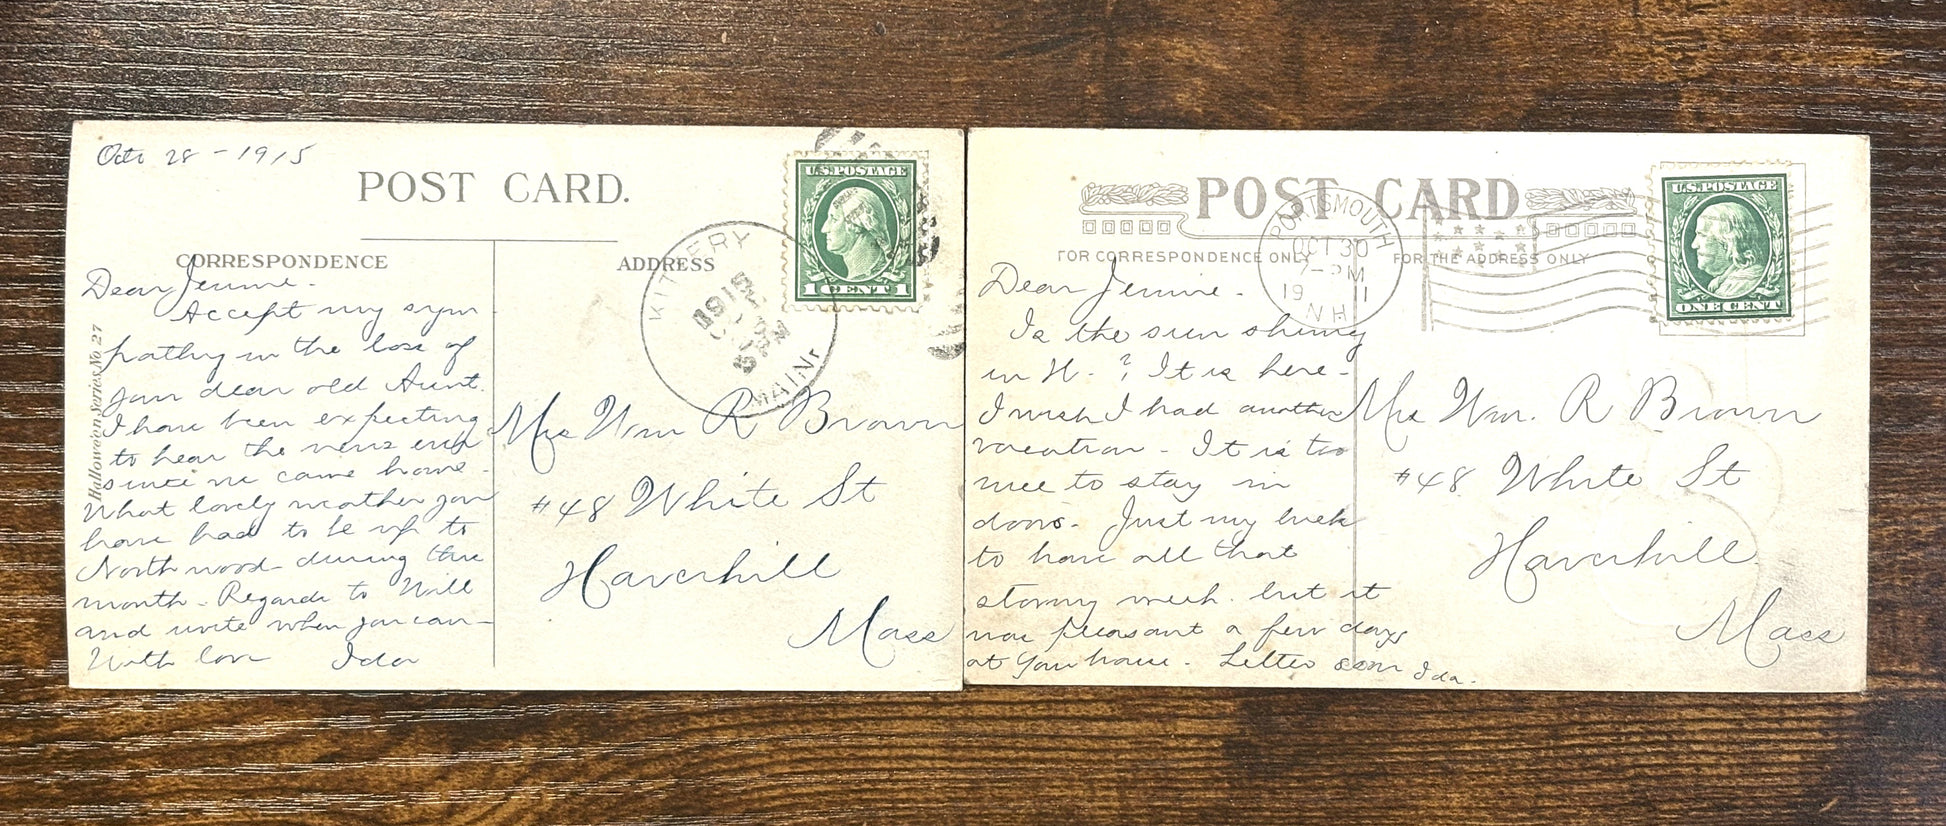 Oct. 28 - 1915
POST CARD.
CORRESPONDENCE
ADDRESS
Halloween Series No 27
U.S. POSTAGE
1 CENT 1
KITTERY
1915
MAINE
Dear Jennie.
Accept my sym-
pathy in the loss of
your dear old Aunt.
I have been expecting
to hear the news ever
since we came home.
What lovely weather you
have had to be up to
Northwood during this
month. Regards to Will
and write when you can-
With love Ida
Mrs Wm R Brown
#48 White St
Haverhill
Mass
POST CARD
FOR CORRESPONDENCE ONLY
FOR THE ADDRESS ONLY
PORTSMOUTH
OCT 30
7-PM
1911
N H
U.S. POSTAGE
ONE CENT
Dear Jennie.
Is the sun shining
in H. ? It is here.
I wish I had another
vacation. It is too
nice to stay in
doors. Just my luck
to have all that
stormy week. but it
was pleasant a few days
at your house. Letter soon Ida.
Mrs Wm. R Brown
#48 White St
Haverhill.
Mass